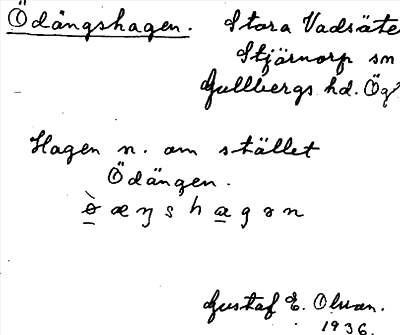 Ödängshagen.
Stora Vadsäte
Stjärnorp sn
Gullbergs hd. Ög.
Hagen n. om stället
Ödängen.
Gustaf E. Olsson.
1936.